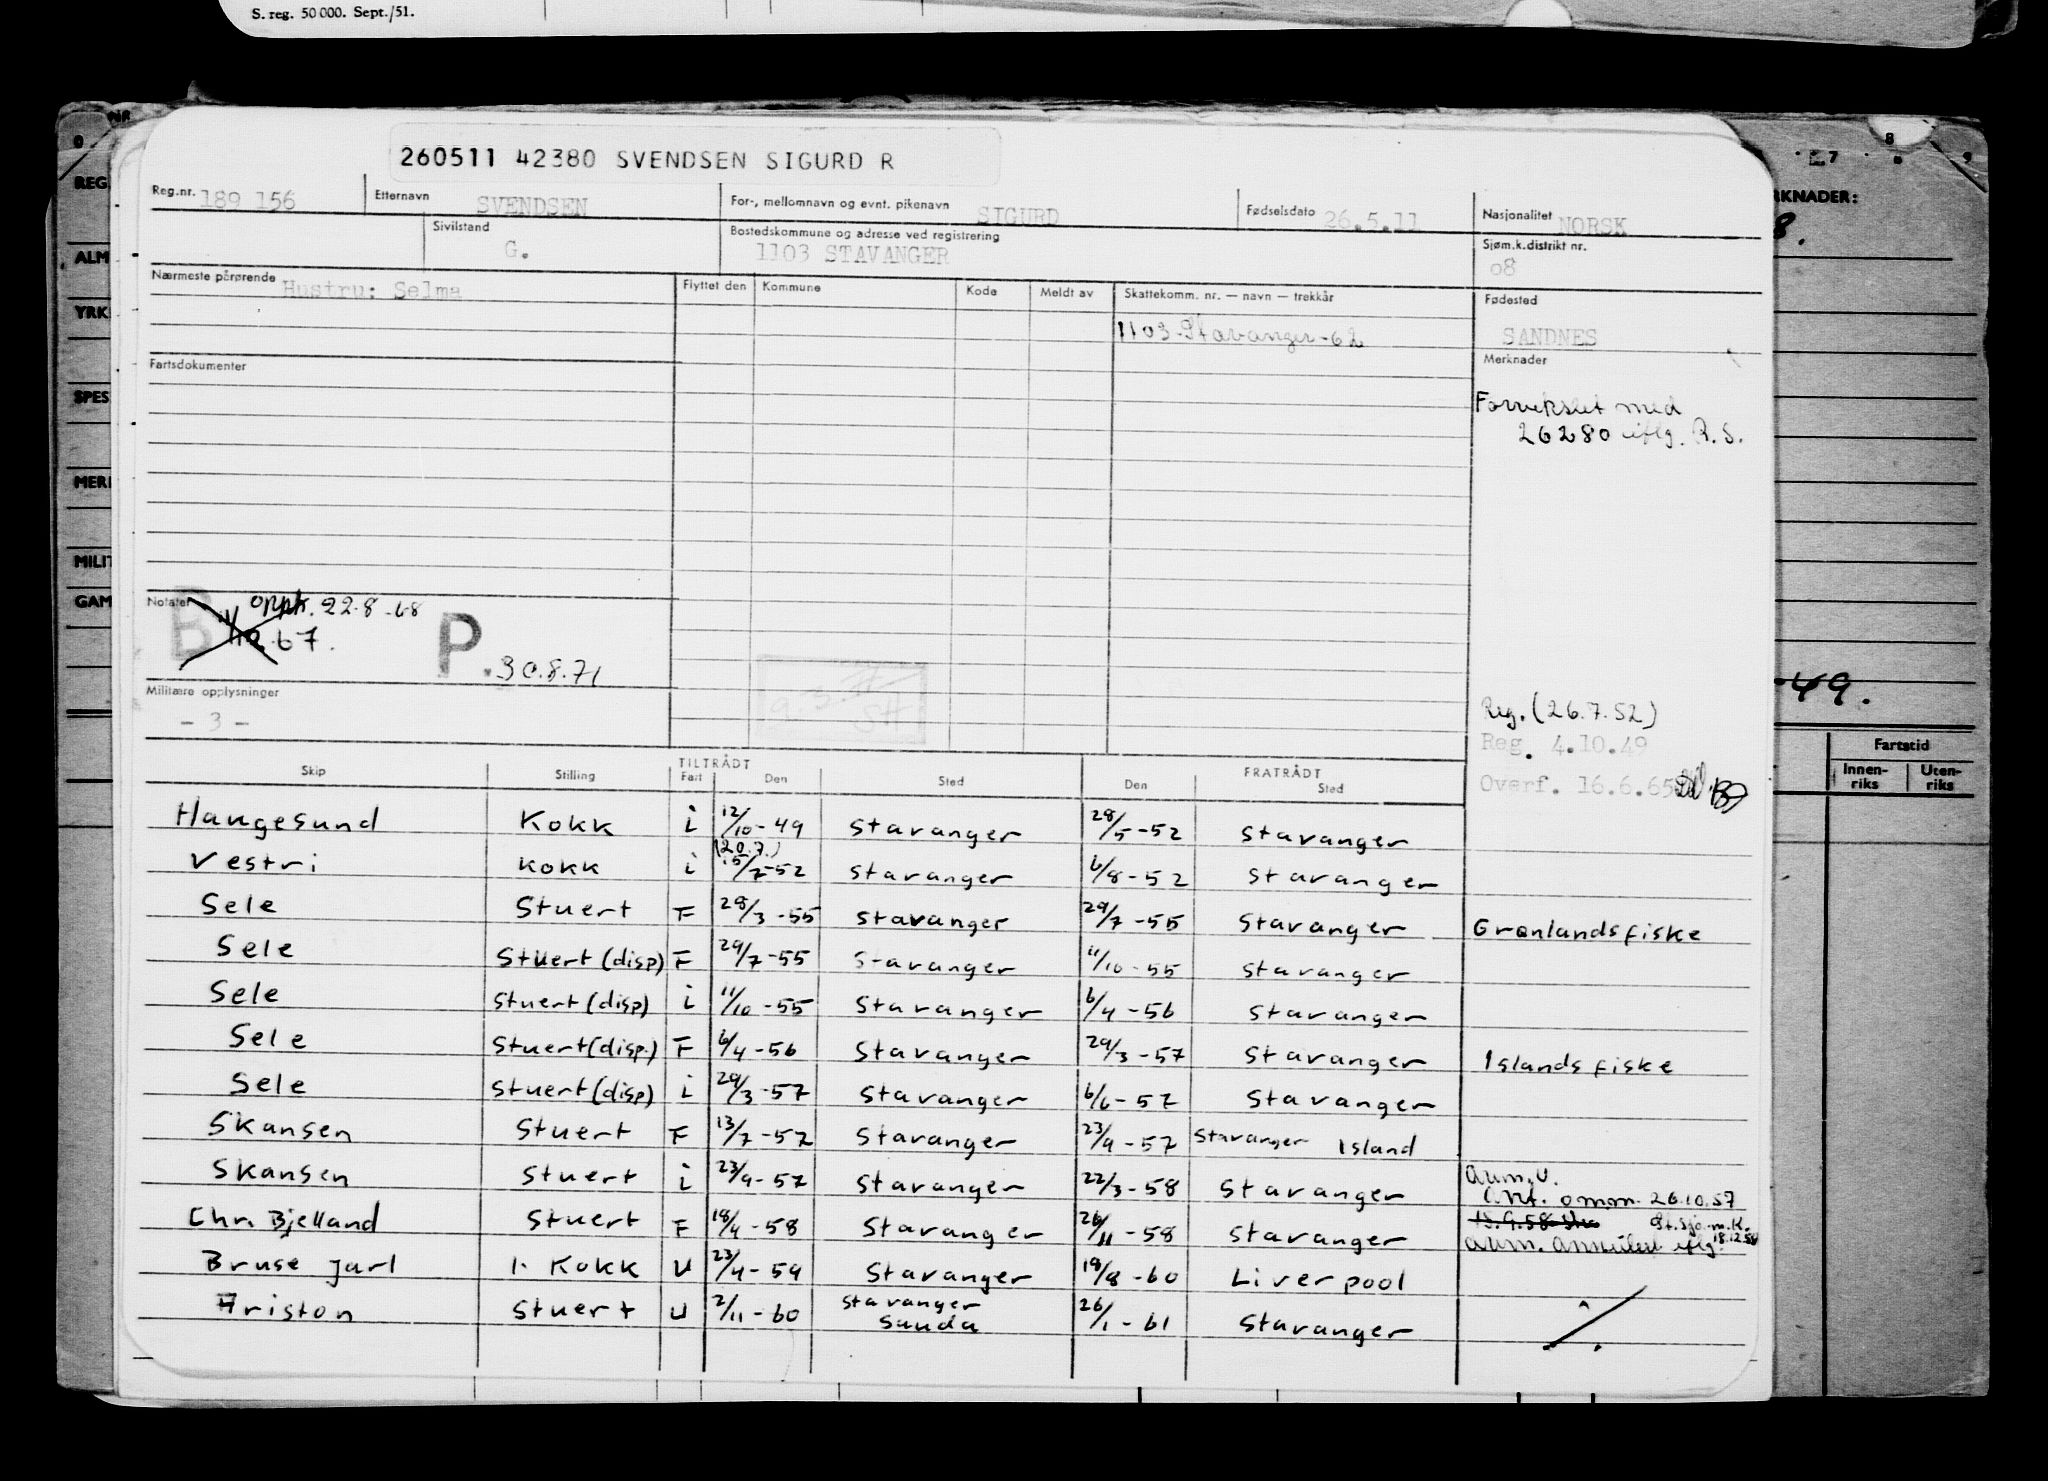 S. reg. 50 000. Sept./51.
260511 42380 SVENDSEN SIGURD R
Reg.nr. 189 156 Etternavn SVENDSEN For-, mellomnavn og evnt. pikenavn SIGURD Fødselsdato 26.5.11 Nasjonalitet NORSK
Sivilstand G. Bostedskommune og adresse ved registrering 1103 STAVANGER Sjøm.k.distrikt nr. 08
Nærmeste pårørende Hustru: Selma Flyttet den Kommune Kode Meldt av Skattekomm. nr. — navn — trekkår Fødested
1103-Stavanger-62 SANDNES
Fartsdokumenter Merknader
Forvekslet med
26280 iflg. R.S.
Notater oppt. 22.8.68
B 67. P. 30.8.71
Militære opplysninger
- 3 -
Reg. (26.7.52)
Reg. 4.10.49
Overf. 16.6.65
Skip Stilling TILTRÅDT Fart Den Sted FRATRÅDT Den Sted
Haugesund Kokk i 12/10-49 Stavanger 28/5-52 Stavanger
(20.7.)
Vestri Kokk i 15/7-52 Stavanger 6/8-52 Stavanger
Sele Stuert F 28/3-55 Stavanger 29/7-55 Stavanger Grønlandsfiske
Sele Stuert (disp) F 29/7-55 Stavanger 11/10-55 Stavanger
Sele Stuert (disp) i 11/10-55 Stavanger 6/4-56 Stavanger
Sele Stuert (disp.) F 6/4-56 Stavanger 29/3-57 Stavanger Islandsfiske
Sele Stuert (disp) i 29/3-57 Stavanger 6/6-57 Stavanger
Skansen Stuert F 13/7-57 Stavanger 23/9-57 Stavanger Island
Skansen Stuert i 23/9-57 Stavanger 22/3-58 Stavanger
26.10.57
Chr. Bjelland Stuert F 18/4-58 Stavanger 26/11-58 Stavanger
Bruse Jarl 1. Kokk U 23/4-59 Stavanger 19/8-60 Liverpool
Ariston Stuert U 2/11-60 Stavanger Sauda 26/1-61 Stavanger
REG.
ALM
YRK
SPES
MERK
MILIT
GAM
RKNADER:
8.
-49.
Fartstid
Innen-riks Uten-riks